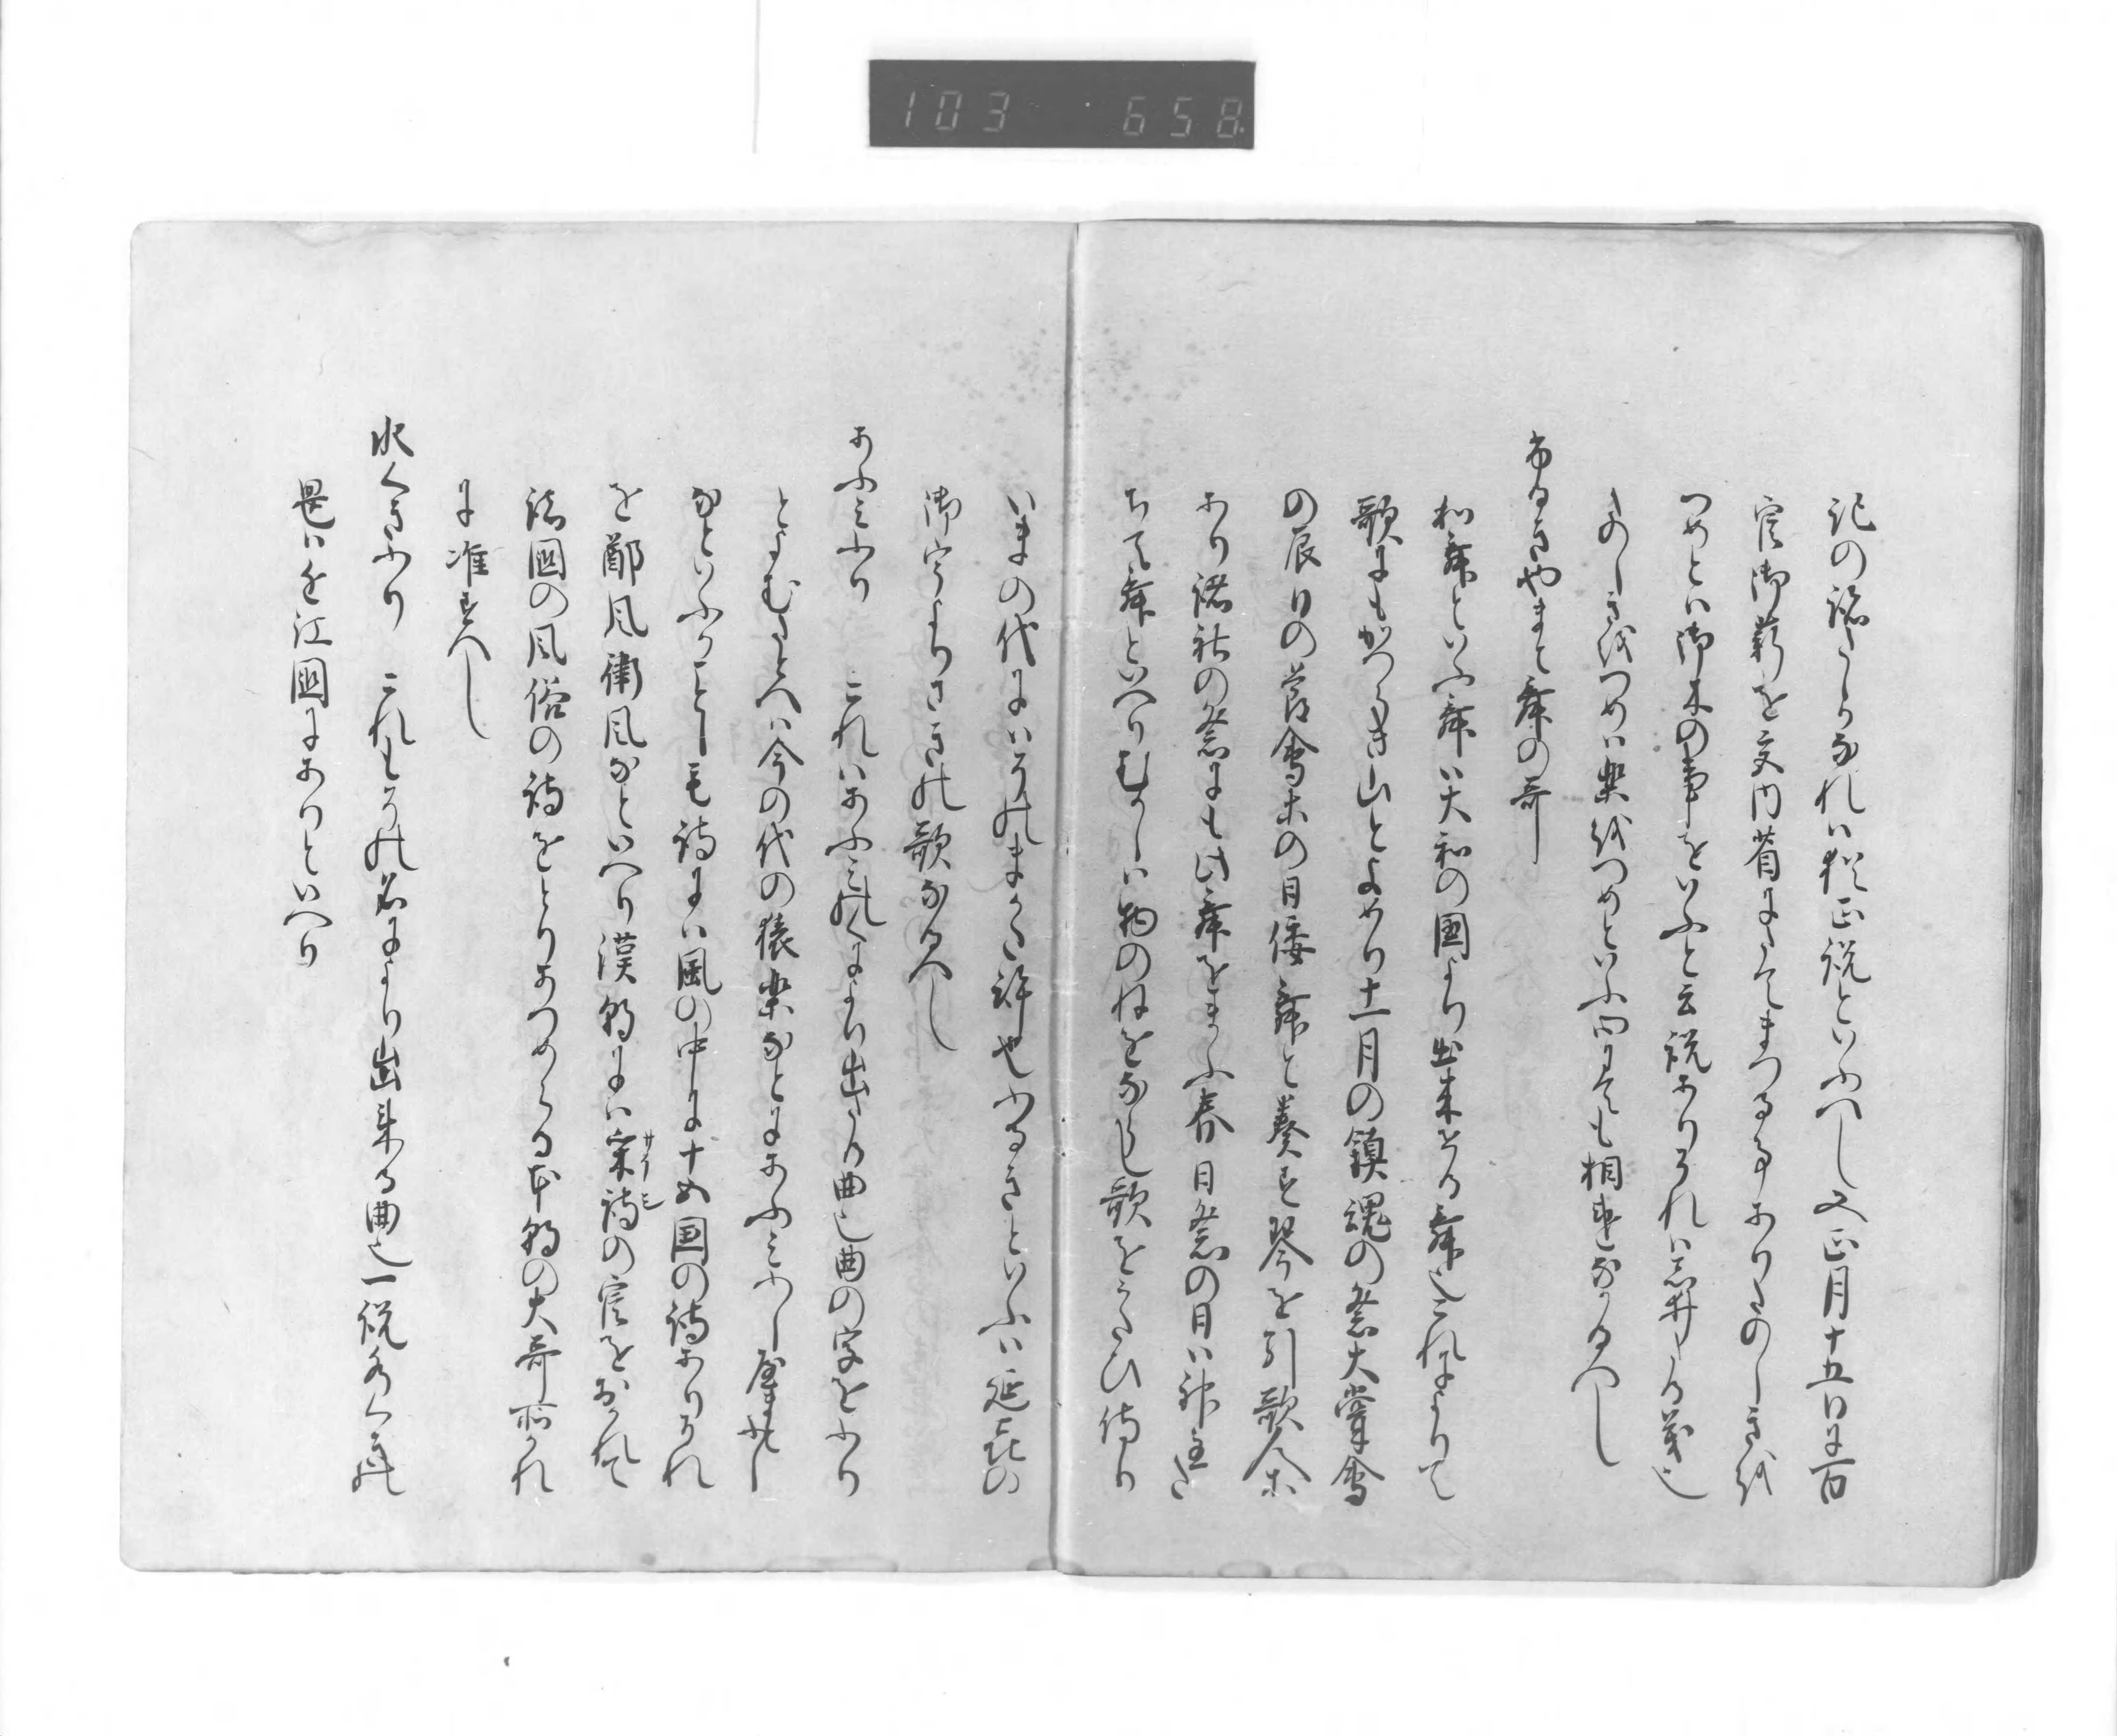 103 658
記の詞たらされは猶正説といふへし又正月十五日に百
官御薪を宮内省にたてまつる事ありたのしきを
つめとは御木の事をいふと云説ありされは
たのしきをつめは楽をつめといふ内にても相違なかるへし
ふるきやまと舞の哥
和舞といふ舞は大和の国より出来たる舞也これによりて
歌にもかつらき山とよめり十一月の鎮魂の祭大嘗會
の辰日の節會ホの日倭舞を奏す琴を引歌人ホ
あり諸社の祭にも此舞をまふ春日祭の日は神主た
ちて舞といへりむかしは物のねをならし歌をうたひ侍り
いまの代にはそのまねかた許也ふるきといふは延喜の
御宇よりさきの歌なるへし
あふみふり これはあふみの国より出たる曲也曲の字をふり
とよむたとへは今の代の猿楽なとにあふみふし
なといふかことし毛詩には風の中に十五国の詩ありそれ
を鄭風衛風なといへり漢朝には采詩の官をおかれて
サイシ
諸國の風俗の詩をとりあつめらる本朝の大哥所これ
に准すへし
水くきふり これもその名により出来る曲也一説水くきの
岡は近江國にありといへり